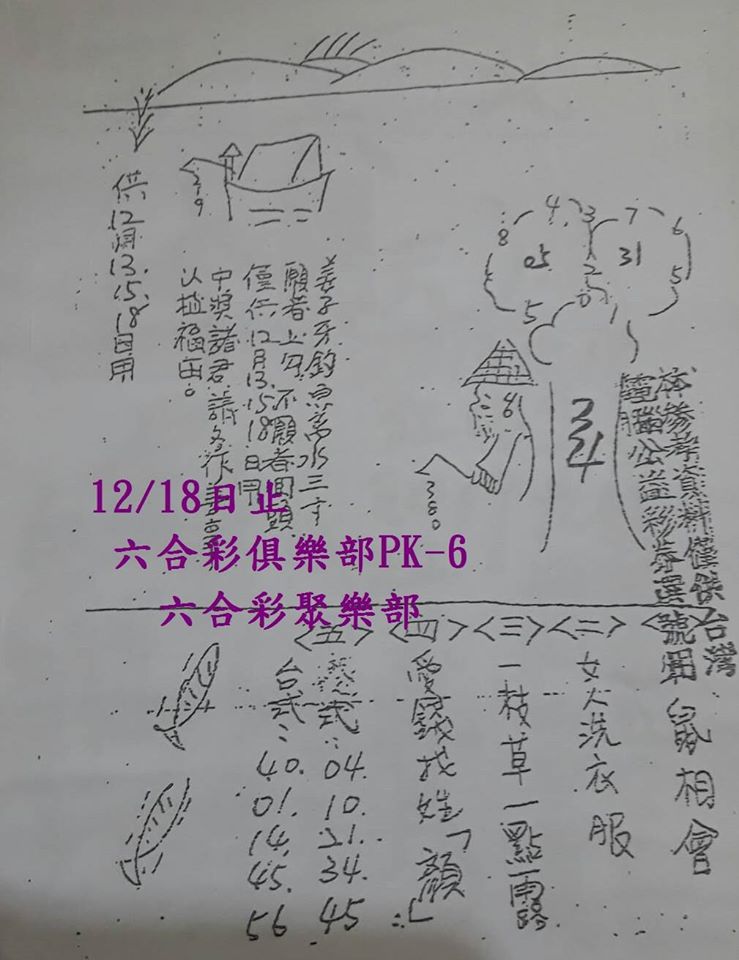 8
4
3
7
6
5
05
31
2
5
0
5
219
供12月13.15.18日用
姜子牙釣魚离水三寸
願者上勾不願者回頭
僅供12月13.15.18日用
中獎諸君請多作善事
以植福田。
34
本參考資料僅供台灣
電腦公益彩券選號用
12/18日止
六合彩俱樂部PK-6
六合彩聚樂部
鼠相會
<二>
女人洗衣服
<三>
一枝草一點雨路
<四>
愛錢找姓「顏」
<五>
港式：04.10.21.34.45
台式：40.01.14.45.56